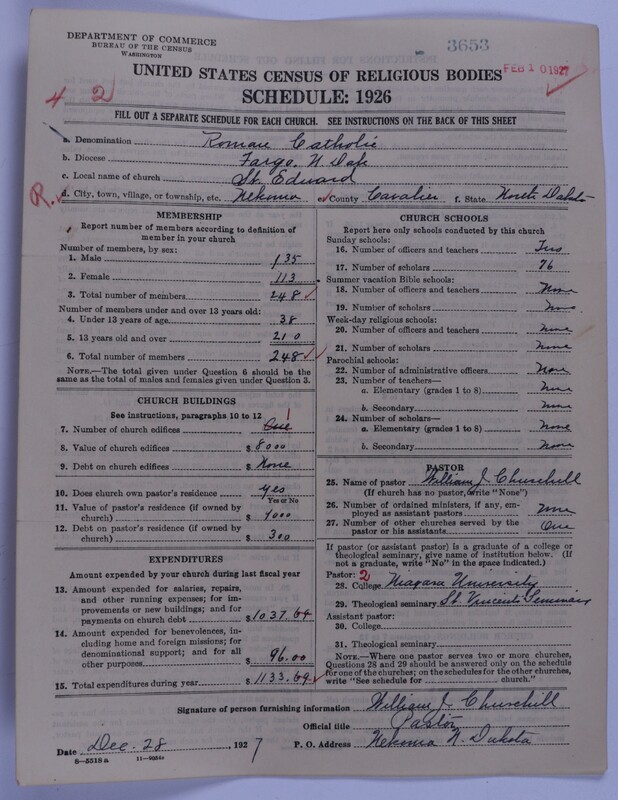 DEPARTMENT OF COMMERCE
BUREAU OF THE CENSUS
WASHINGTON
3653
FEB 10 1927
UNITED STATES CENSUS OF RELIGIOUS BODIES
4 2
SCHEDULE: 1926
FILL OUT A SEPARATE SCHEDULE FOR EACH CHURCH. SEE INSTRUCTIONS ON THE BACK OF THIS SHEET
a. Denomination Roman Catholic
b. Diocese Fargo, N. Dak
c. Local name of church St. Edward
R. d. City, town, village, or township, etc. Nekoma e. County Cavalier f. State North Dakota
MEMBERSHIP
Report number of members according to definition of
member in your church
Number of members, by sex:
1. Male 135
2. Female 113
3. Total number of members 248
Number of members under and over 13 years old:
4. Under 13 years of age 38
5. 13 years old and over 210
6. Total number of members 248
NOTE.—The total given under Question 6 should be the
same as the total of males and females given under Question 3.
CHURCH BUILDINGS
See instructions, paragraphs 10 to 12
7. Number of church edifices One 1
8. Value of church edifices $ 8000
9. Debt on church edifices $ None
10. Does church own pastor's residence yes
Yes or No
11. Value of pastor's residence (if owned by
church) $ 4000
12. Debt on pastor's residence (if owned by
church) $ 300
EXPENDITURES
Amount expended by your church during last fiscal year
13. Amount expended for salaries, repairs,
and other running expenses; for im-
provements or new buildings; and for
payments on church debt $ 1037.69
14. Amount expended for benevolences, in-
cluding home and foreign missions; for
denominational support; and for all
other purposes $ 96.00
15. Total expenditures during year $ 1133.69
CHURCH SCHOOLS
Report here only schools conducted by this church
Sunday schools:
16. Number of officers and teachers Two
17. Number of scholars 76
Summer vacation Bible schools:
18. Number of officers and teachers None
19. Number of scholars None
Week-day religious schools:
20. Number of officers and teachers None
21. Number of scholars None
Parochial schools:
22. Number of administrative officers None
23. Number of teachers—
a. Elementary (grades 1 to 8) None
b. Secondary None
24. Number of scholars—
a. Elementary (grades 1 to 8) None
b. Secondary None
PASTOR
25. Name of pastor William J. Churchill
(If church has no pastor, write "None")
26. Number of ordained ministers, if any, em-
ployed as assistant pastors None
27. Number of other churches served by the
pastor or his assistants One
If pastor (or assistant pastor) is a graduate of a college or
theological seminary, give name of institution below. (If
not a graduate, write "No" in the space indicated.)
Pastor: 2
28. College Niagara University
29. Theological seminary St. Vincents Seminary
Assistant pastor:
30. College
31. Theological seminary
NOTE.—Where one pastor serves two or more churches,
Questions 28 and 29 should be answered only on the schedule
for one of the churches; on the schedules for the other churches,
write "See schedule for church."
Signature of person furnishing information William J. Churchill
Official title Pastor
Date Dec. 28, 1927 P. O. Address Nekoma N. Dakota
8—5518a 11—4664